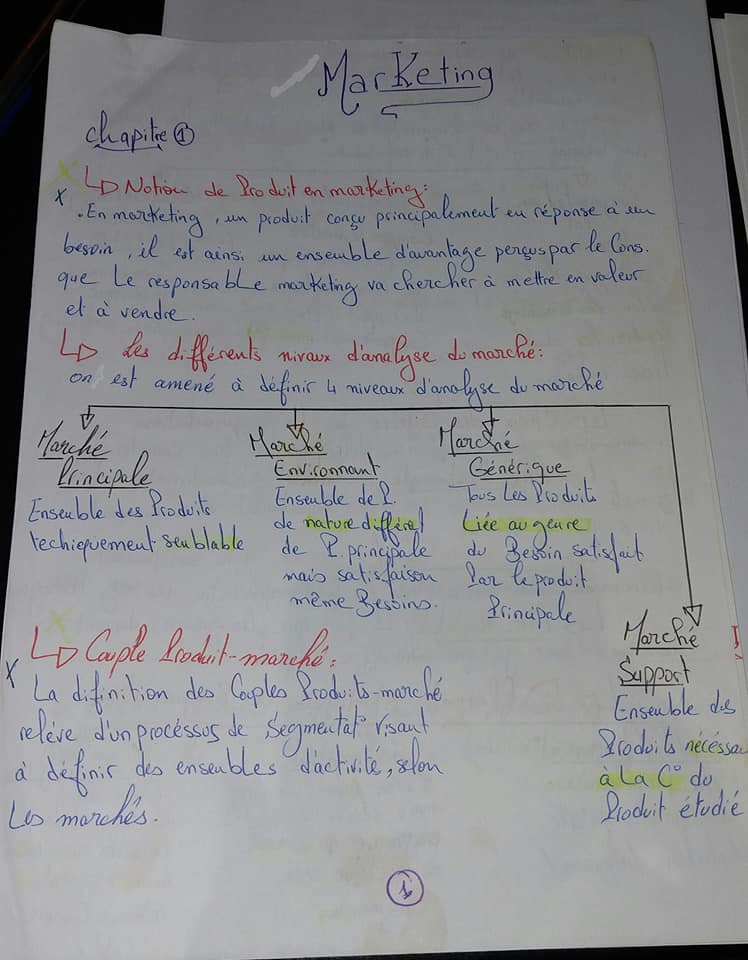 Marketing
chapitre ①
Notion de Produit en marketing:
x
. En marketing, un produit conçu principalement en réponse à un
besoin, il est ainsi un ensemble d'avantage perçus par le Cons.
que Le responsable marketing va chercher à mettre en valeur
et à vendre.
Les différents nivaux d'analyse du marché:
on est amené à définir 4 niveaux d'analyse du marché
Marché
Principale
Ensemble des Produits
techiquement semblable
Marché
Environnant
Ensemble de P.
de nature différe
de P. principale
mais satisfaison
même Besoins.
Marché
Générique
Tous Les Produits
Liée au genre
du Besoin satisfait
Par le produit
Principale
Marché
Support
Ensemble des
Produits nécéssa
à La C° du
Produit étudié
Couple Produit-marché:
x
La difinition des Couples Produits-marché
relève d'un procéssus de Segmentat° visant
à définir des ensembles d'activité, selon
Les marchés.
1